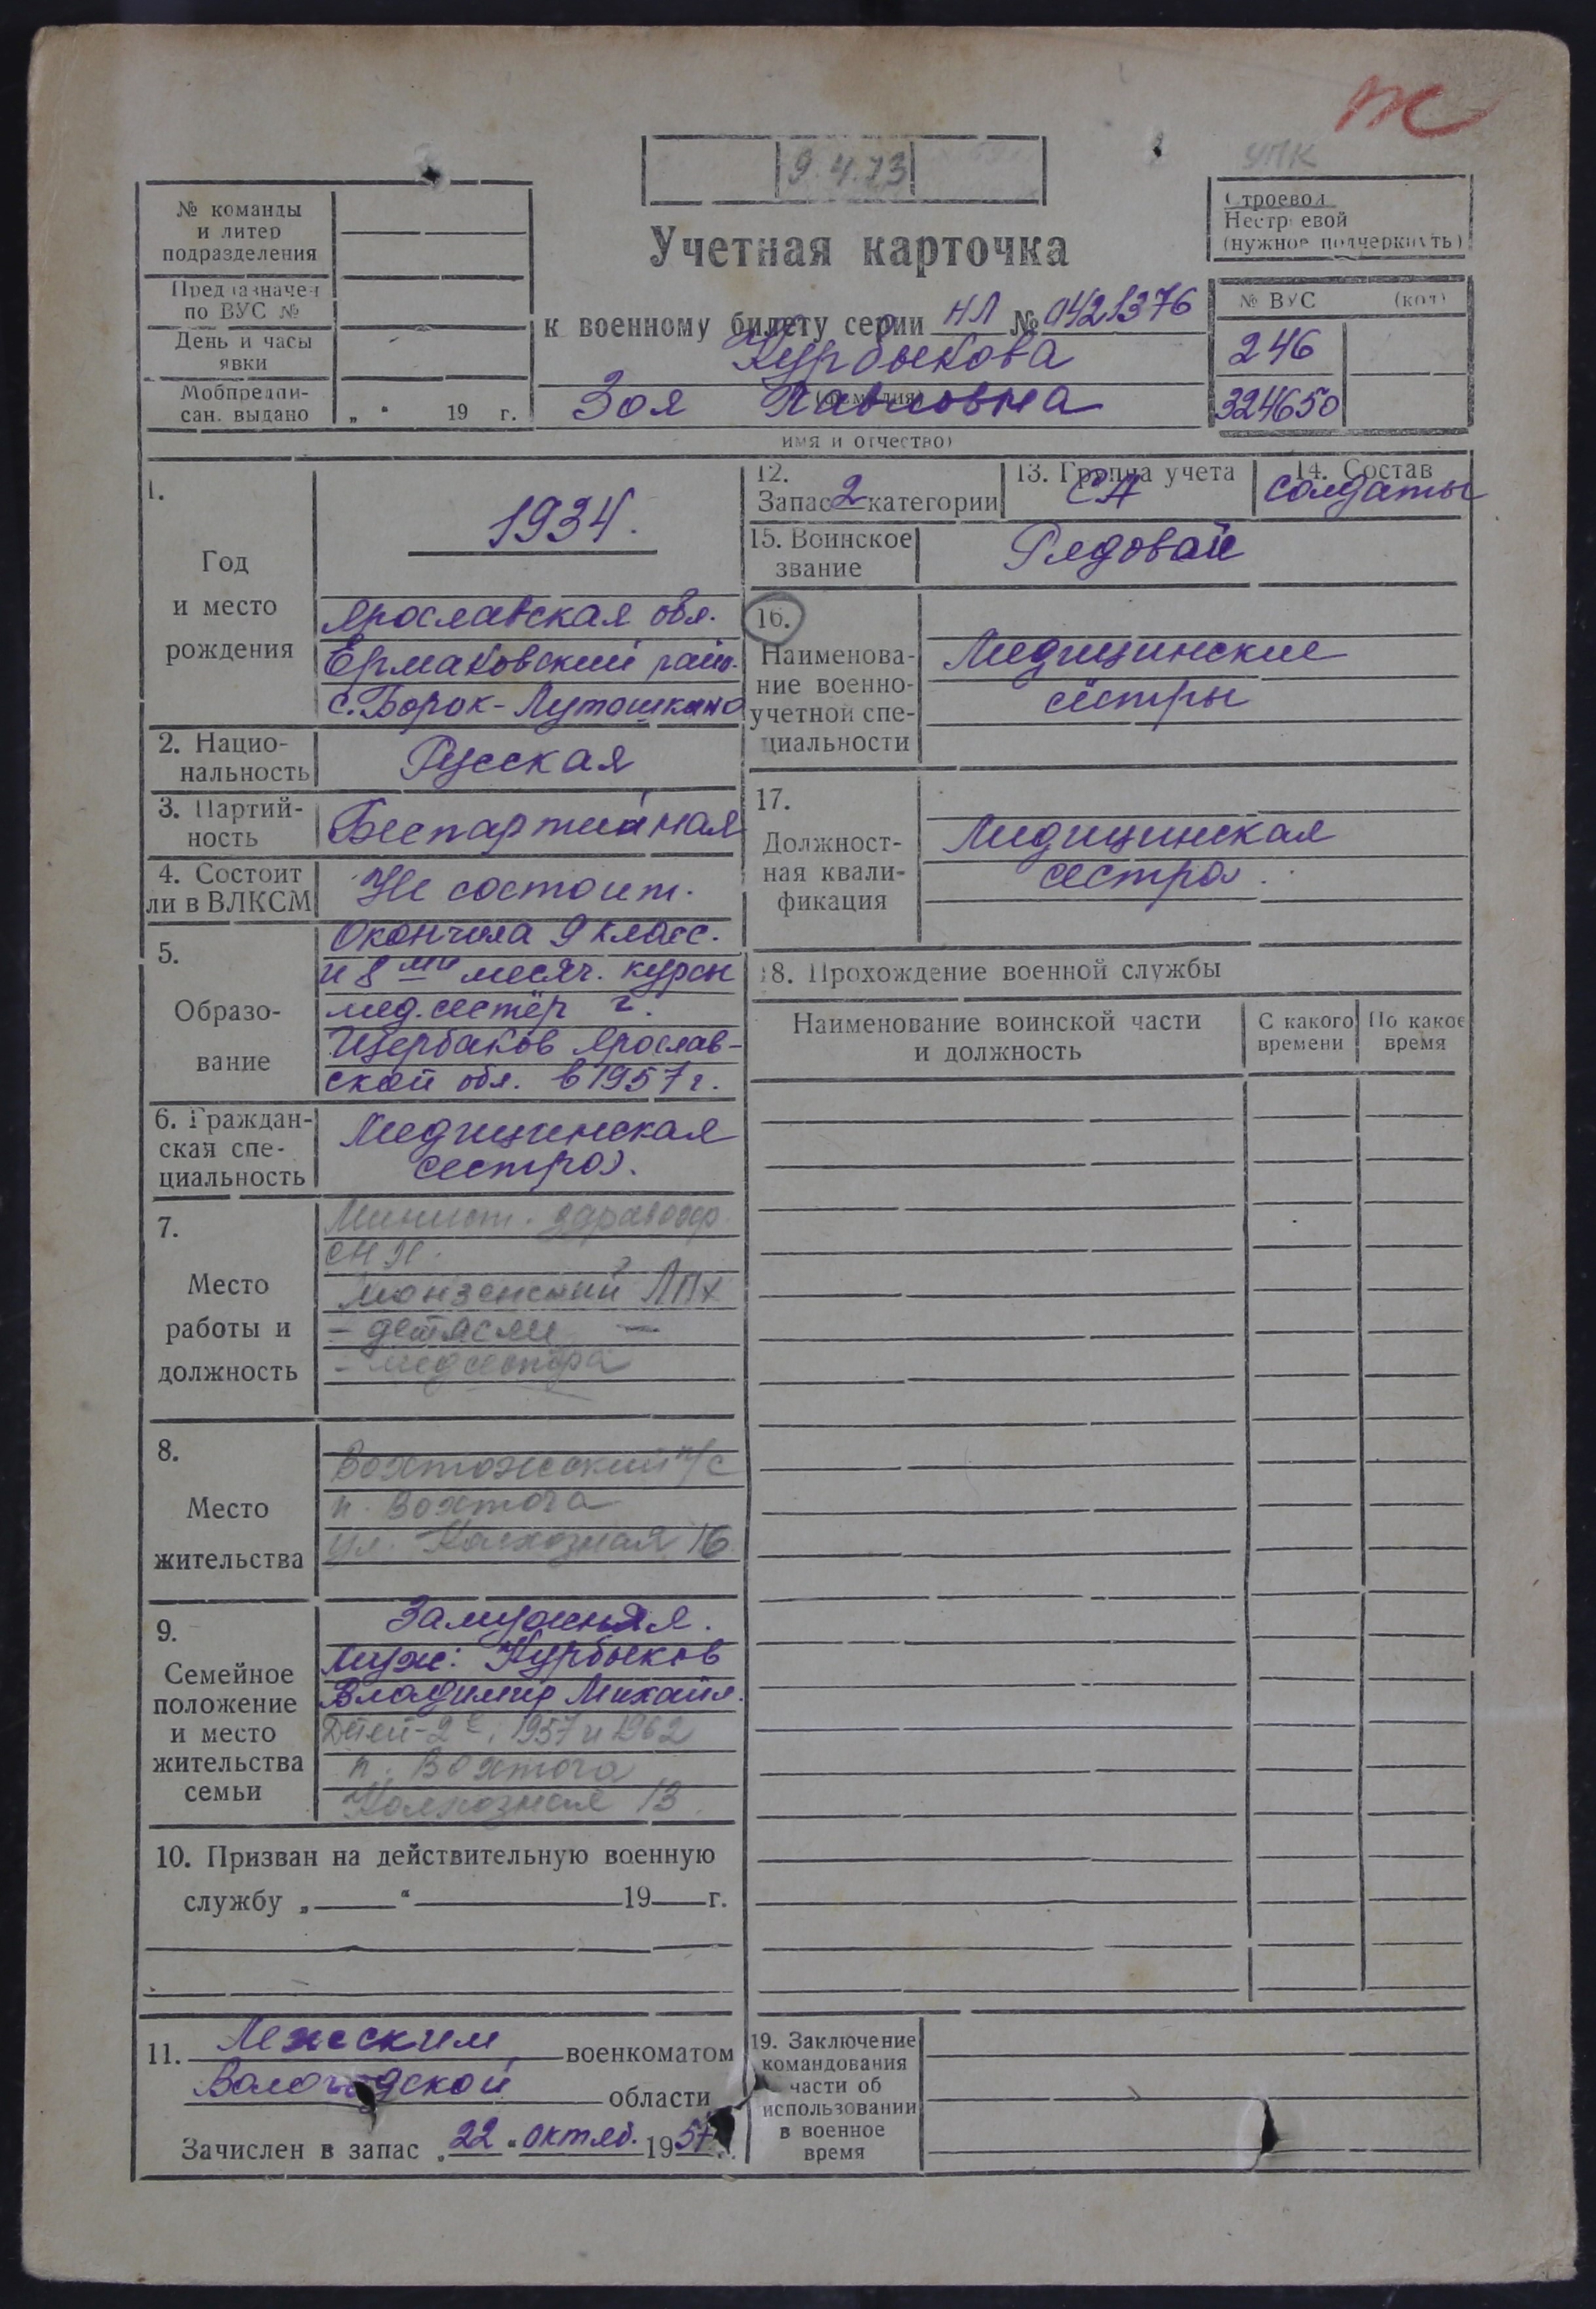 Ж
УПК
9.4.73
№ команды
и литер
подразделения
Предназначен
по ВУС №
День и часы
явки
Мобпредпи-
сан. выдано „ “ 19 г.
Учетная карточка
к военному билету серии НЛ № 0421376
Курбыкова
(фамилия)
Зоя Павловна
имя и отчество)
Строевой
Нестроевой
(нужное подчеркнуть)
№ ВУС (код)
246
324650
1.
Год
и место
рождения
1934.
Ярославская обл.
Ермаковский район.
с. Борок-Лутошкино
2. Нацио-
нальность
Русская
3. Партий-
ность
Беспартийная
4. Состоит
ли в ВЛКСМ
Не состоит.
5.
Образо-
вание
Окончила 9 класс.
и 8ми месяч. курсы
мед. сестёр г.
Щербаков Ярослав-
ской обл. в 1957 г.
6. Граждан-
ская спе-
циальность
Медицинская
сестра.
7.
Место
работы и
должность
Минист. здравоохр.
Монзенский ЛПХ
- детясли -
- медсестра
8.
Место
жительства
Вохтожский п/с
п. Вохтога
ул. Колхозная 16
9.
Семейное
положение
и место
жительства
семьи
Замужняя.
Муж: Курбыков
Владимир Михайл.
Детей-2е: 1957 и 1962
п. Вохтога
Колхозная 13.
10. Призван на действительную военную
службу „ “ 19 г.
11. Лежским военкоматом
Вологодской области
Зачислен в запас „22 “ октяб. 1957 г.
12.
Запас 2 категории
13. Группа учета
СА
14. Состав
солдаты
15. Воинское
звание
Рядовой
16.
Наименова-
ние военно-
учетной спе-
циальности
Медицинские
сёстры
17.
Должност-
ная квали-
фикация
Медицинская
сестра.
18. Прохождение военной службы
Наименование воинской части
и должность
С какого
времени
По какое
время
19. Заключение
командования
части об
использовании
в военное
время